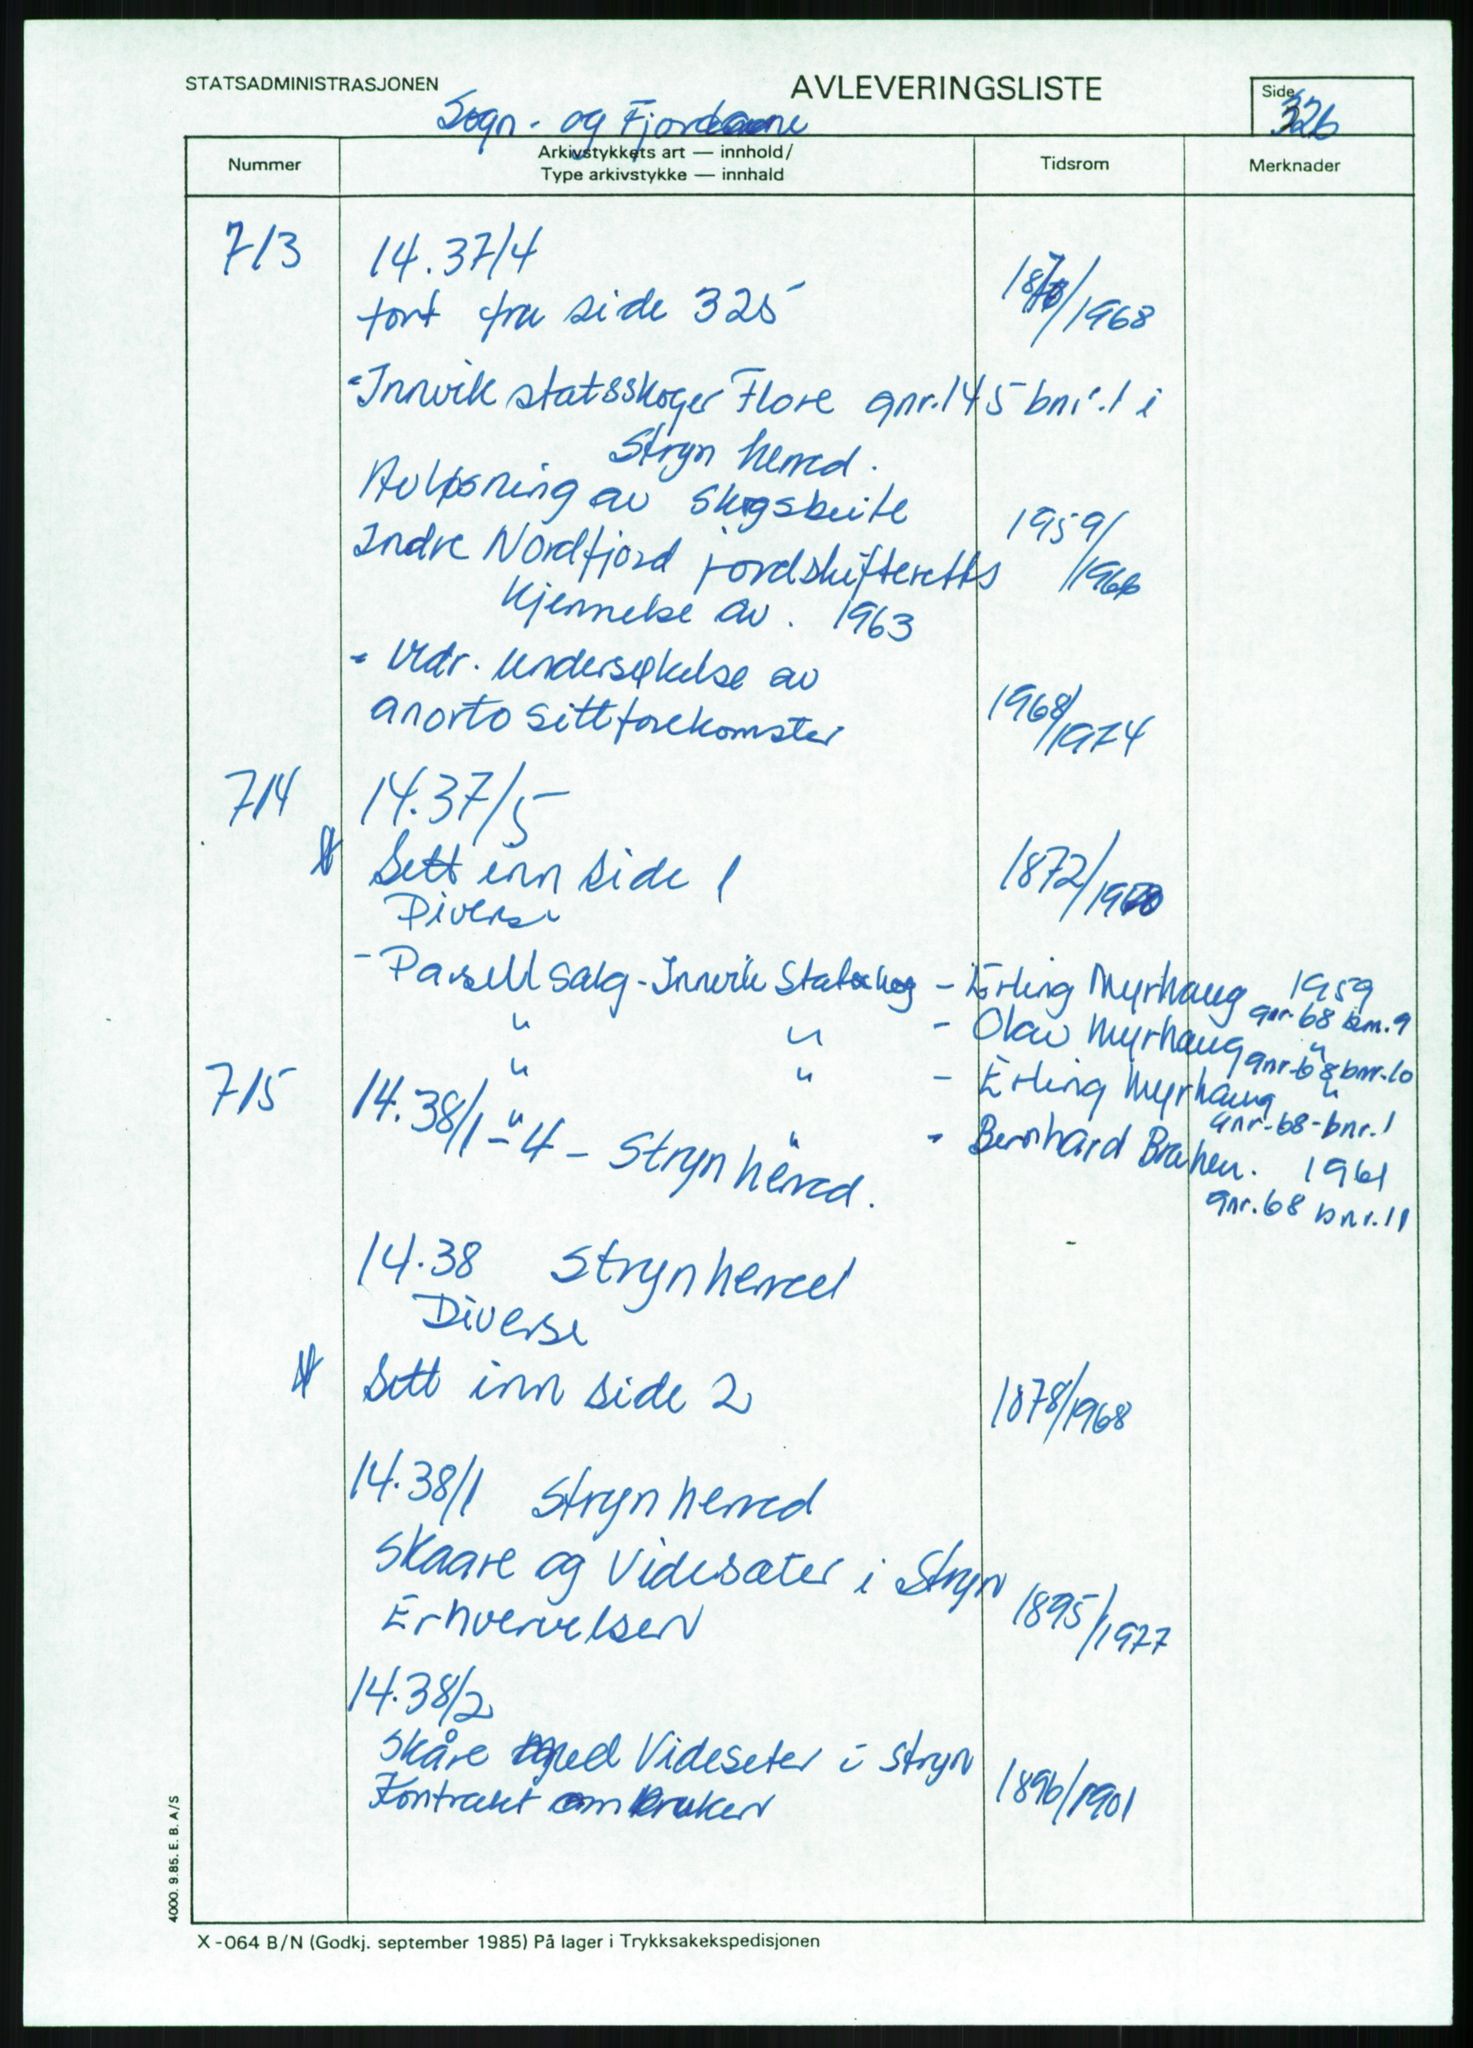 STATSADMINISTRASJONEN
AVLEVERINGSLISTE
Side
326
Sogn- og Fjordane
Nummer
Arkivstykkets art — innhold/
Type arkivstykke — innhald
Tidsrom
Merknader
713 14.37/4
fort fra side 325 /1968
- Innvik statsskoger Flore gnr.145 bnr.1 i
Stryn herred.
Avløsning av skogsbeite
Indre Nordfjord jordskifteretts 1959/
Kjennelse av. 1963
- Vedr. undersøkelse av
anortosittforekomster 1968/1974
714 14.37/5
Sett inn side 1 1872/
Diverse
- Parsellsalg - Innvik Statsskog - Erling Myrhaug 1959
gnr. 68 bnr. 9
" " - Olav Myrhaug "
gnr. 68 bnr. 10
" " - Erling Myrhaug "
gnr. 68 - bnr. 1
" " - Bernhard 1961
gnr. 68 bnr. 11
715 14.38/1-4 - Stryn herred.
14.38 Stryn herred
Diverse
Sett inn side 2 1878/1968
14.38/1 Stryn herred
Skaare og Videsæter i Stryn
Erhvervelsen 1895/1977
14.38/2
Skåre med Videseter i Stryn
Kontrakt om bruken 1896/1901
4000. 9.85. E. B. A/S
X-064 B/N (Godkj. september 1985) På lager i Trykksakekspedisjonen